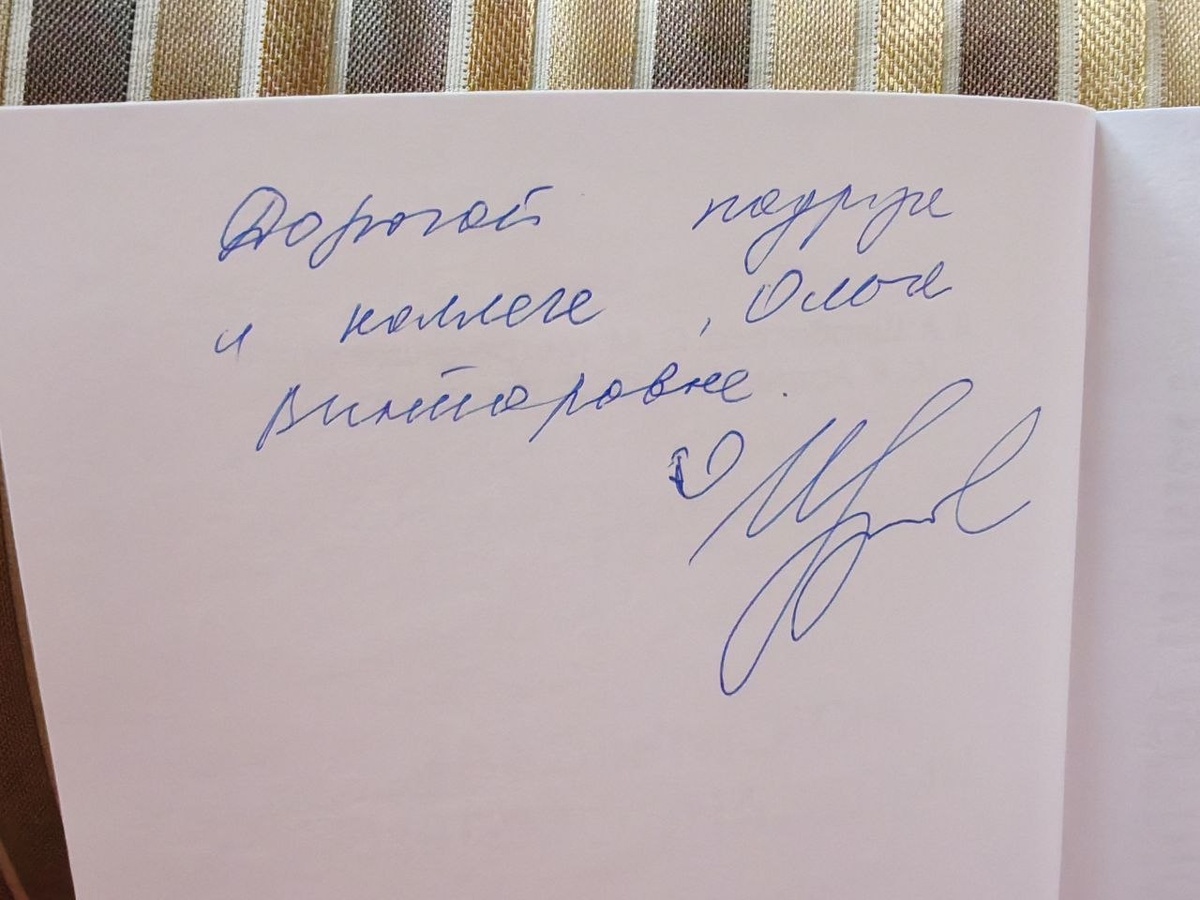 Дорогой подруге
и коллеге, Ольге
Викторовне.